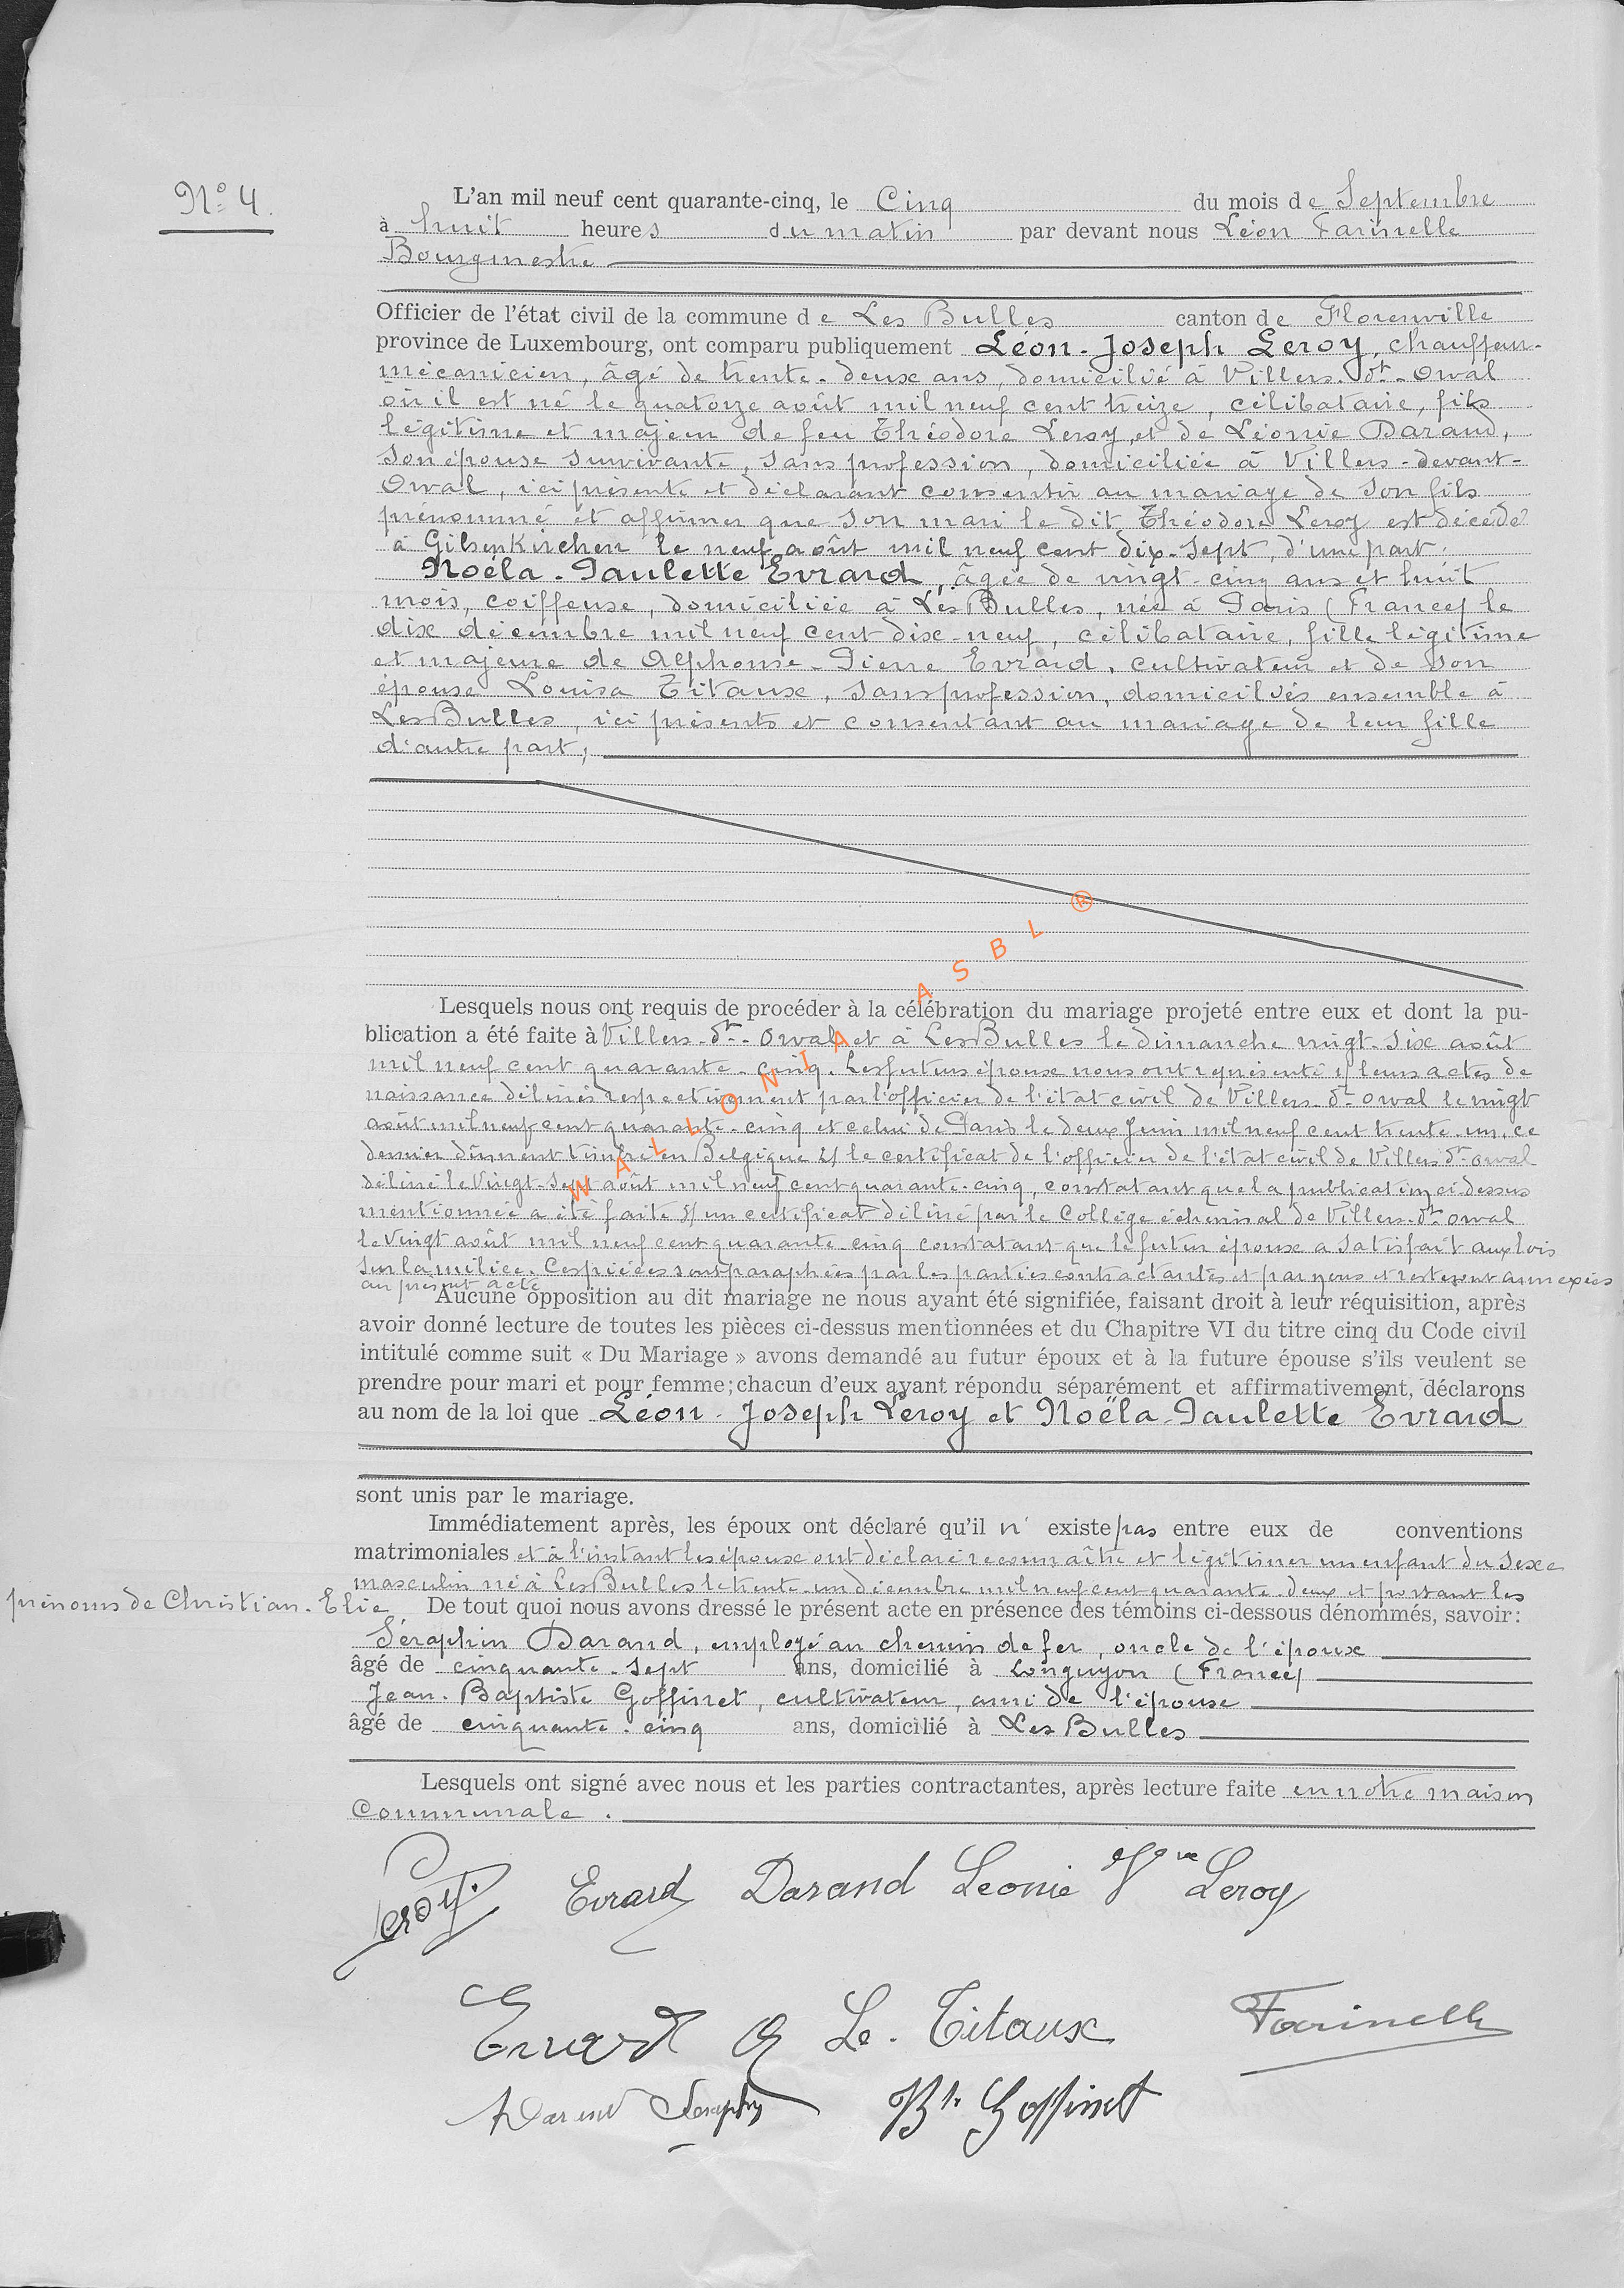 N° 4.
L'an mil neuf cent quarante-cinq, le Cinq du mois de Septembre
à huit heures du matin par devant nous Léon Farinelle
Bourgmestre
Officier de l'état civil de la commune de Les Bulles canton de Florenville
province de Luxembourg, ont comparu publiquement Léon-Joseph Leroy, chauffeur-
mécanicien, âgé de trente-deux ans, domicilié à Villers-dt-Orval
où il est né le quatorze août mil neuf cent treize, célibataire, fils
légitime et majeur de feu Théodore Leroy et de Léonie Darand,
son épouse survivante, sans profession, domiciliée à Villers-devant-
Orval, ici présente et déclarant consentir au mariage de son fils
prénommé et affirmer que son mari le dit Théodore Leroy est décédé
à Gilsenkirchen le neuf août mil neuf cent dix-sept, d'une part;
Noëla-Paulette Evrard, âgée de vingt-cinq ans et huit
mois, coiffeuse, domiciliée à Les Bulles, née à Paris (France) le
dix décembre mil neuf cent dix-neuf, célibataire, fille légitime
et majeure de Alphonse-Pierre Evrard, cultivateur et de son
épouse Louisa Titaux, sans profession, domiciliés ensemble à
Les Bulles, ici présents et consentant au mariage de leur fille
d'autre part;
Lesquels nous ont requis de procéder à la célébration du mariage projeté entre eux et dont la pu-
blication a été faite à Villers-dt-Orval et à Les Bulles le dimanche vingt-six août
mil neuf cent quarante-cinq. Les futurs époux nous ont représenté 1/ leurs actes de
naissance délivrés respectivement par l'officier de l'état civil de Villers-dt-Orval le vingt
août mil neuf cent quarante-cinq et celui de Paris le deux Juin mil neuf cent trente-un, ce
dernier dûment timbré en Belgique 2/ le certificat de l'officier de l'état civil de Villers-dt-Orval
délivré le Vingt-Sept août mil neuf cent quarante-cinq, constatant que la publication ci-dessus
mentionnée a été faite 3/ un certificat délivré par le Collège échevinal de Villers-dt-Orval
le Vingt août mil neuf cent quarante-cinq constatant que le futur époux a satisfait aux lois
sur la milice. Ces pièces sont paraphées par les parties contractantes et par nous et resteront annexées
au présent acte
Aucune opposition au dit mariage ne nous ayant été signifiée, faisant droit à leur réquisition, après
avoir donné lecture de toutes les pièces ci-dessus mentionnées et du Chapitre VI du titre cinq du Code civil
intitulé comme suit « Du Mariage » avons demandé au futur époux et à la future épouse s'ils veulent se
prendre pour mari et pour femme; chacun d'eux ayant répondu séparément et affirmativement, déclarons
au nom de la loi que Léon-Joseph Leroy et Noëla-Paulette Evrard
sont unis par le mariage.
Immédiatement après, les époux ont déclaré qu'il n'existe pas entre eux de conventions
matrimoniales et à l'instant les époux ont déclaré reconnaître et légitimer un enfant du sexe
masculin né à Les Bulles le trente-un décembre mil neuf cent quarante-deux et portant les
prénoms de Christian-Elie. De tout quoi nous avons dressé le présent acte en présence des témoins ci-dessous dénommés, savoir:
Séraphin Darand, employé au chemin de fer, oncle de l'époux
âgé de cinquante-sept ans, domicilié à Longuyon (France)
Jean-Baptiste Goffinet, cultivateur, ami de l'épouse
âgé de cinquante-cinq ans, domicilié à Les Bulles
Lesquels ont signé avec nous et les parties contractantes, après lecture faite en notre maison
Communale.
Leroy. Evrard Darand Leonie Vve Leroy
Evrard A Le. Titaux Farinelle
Darand Seraphin Bte Goffinet
WALLONIA ASBL ®